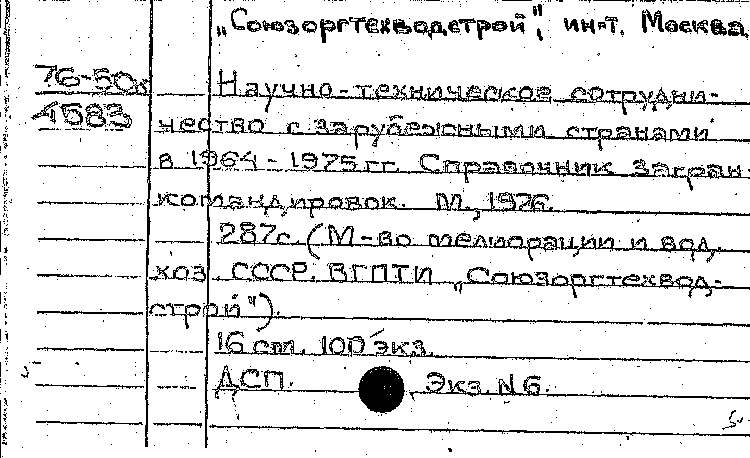 „Союзоргтехводстрой", ин-т. Москва.
76-50с Научно-техническое сотрудни-
4583 чество с зарубежными странами
в 1964-1975 гг. Справочник загран-
командировок. М., 1976.
287с. (М-во мелиорации и вод.
хоз. СССР. ВГПТИ „Союзоргтехвод-
строй").
16 см. 100 экз.
ДСП. Экз. N 6.